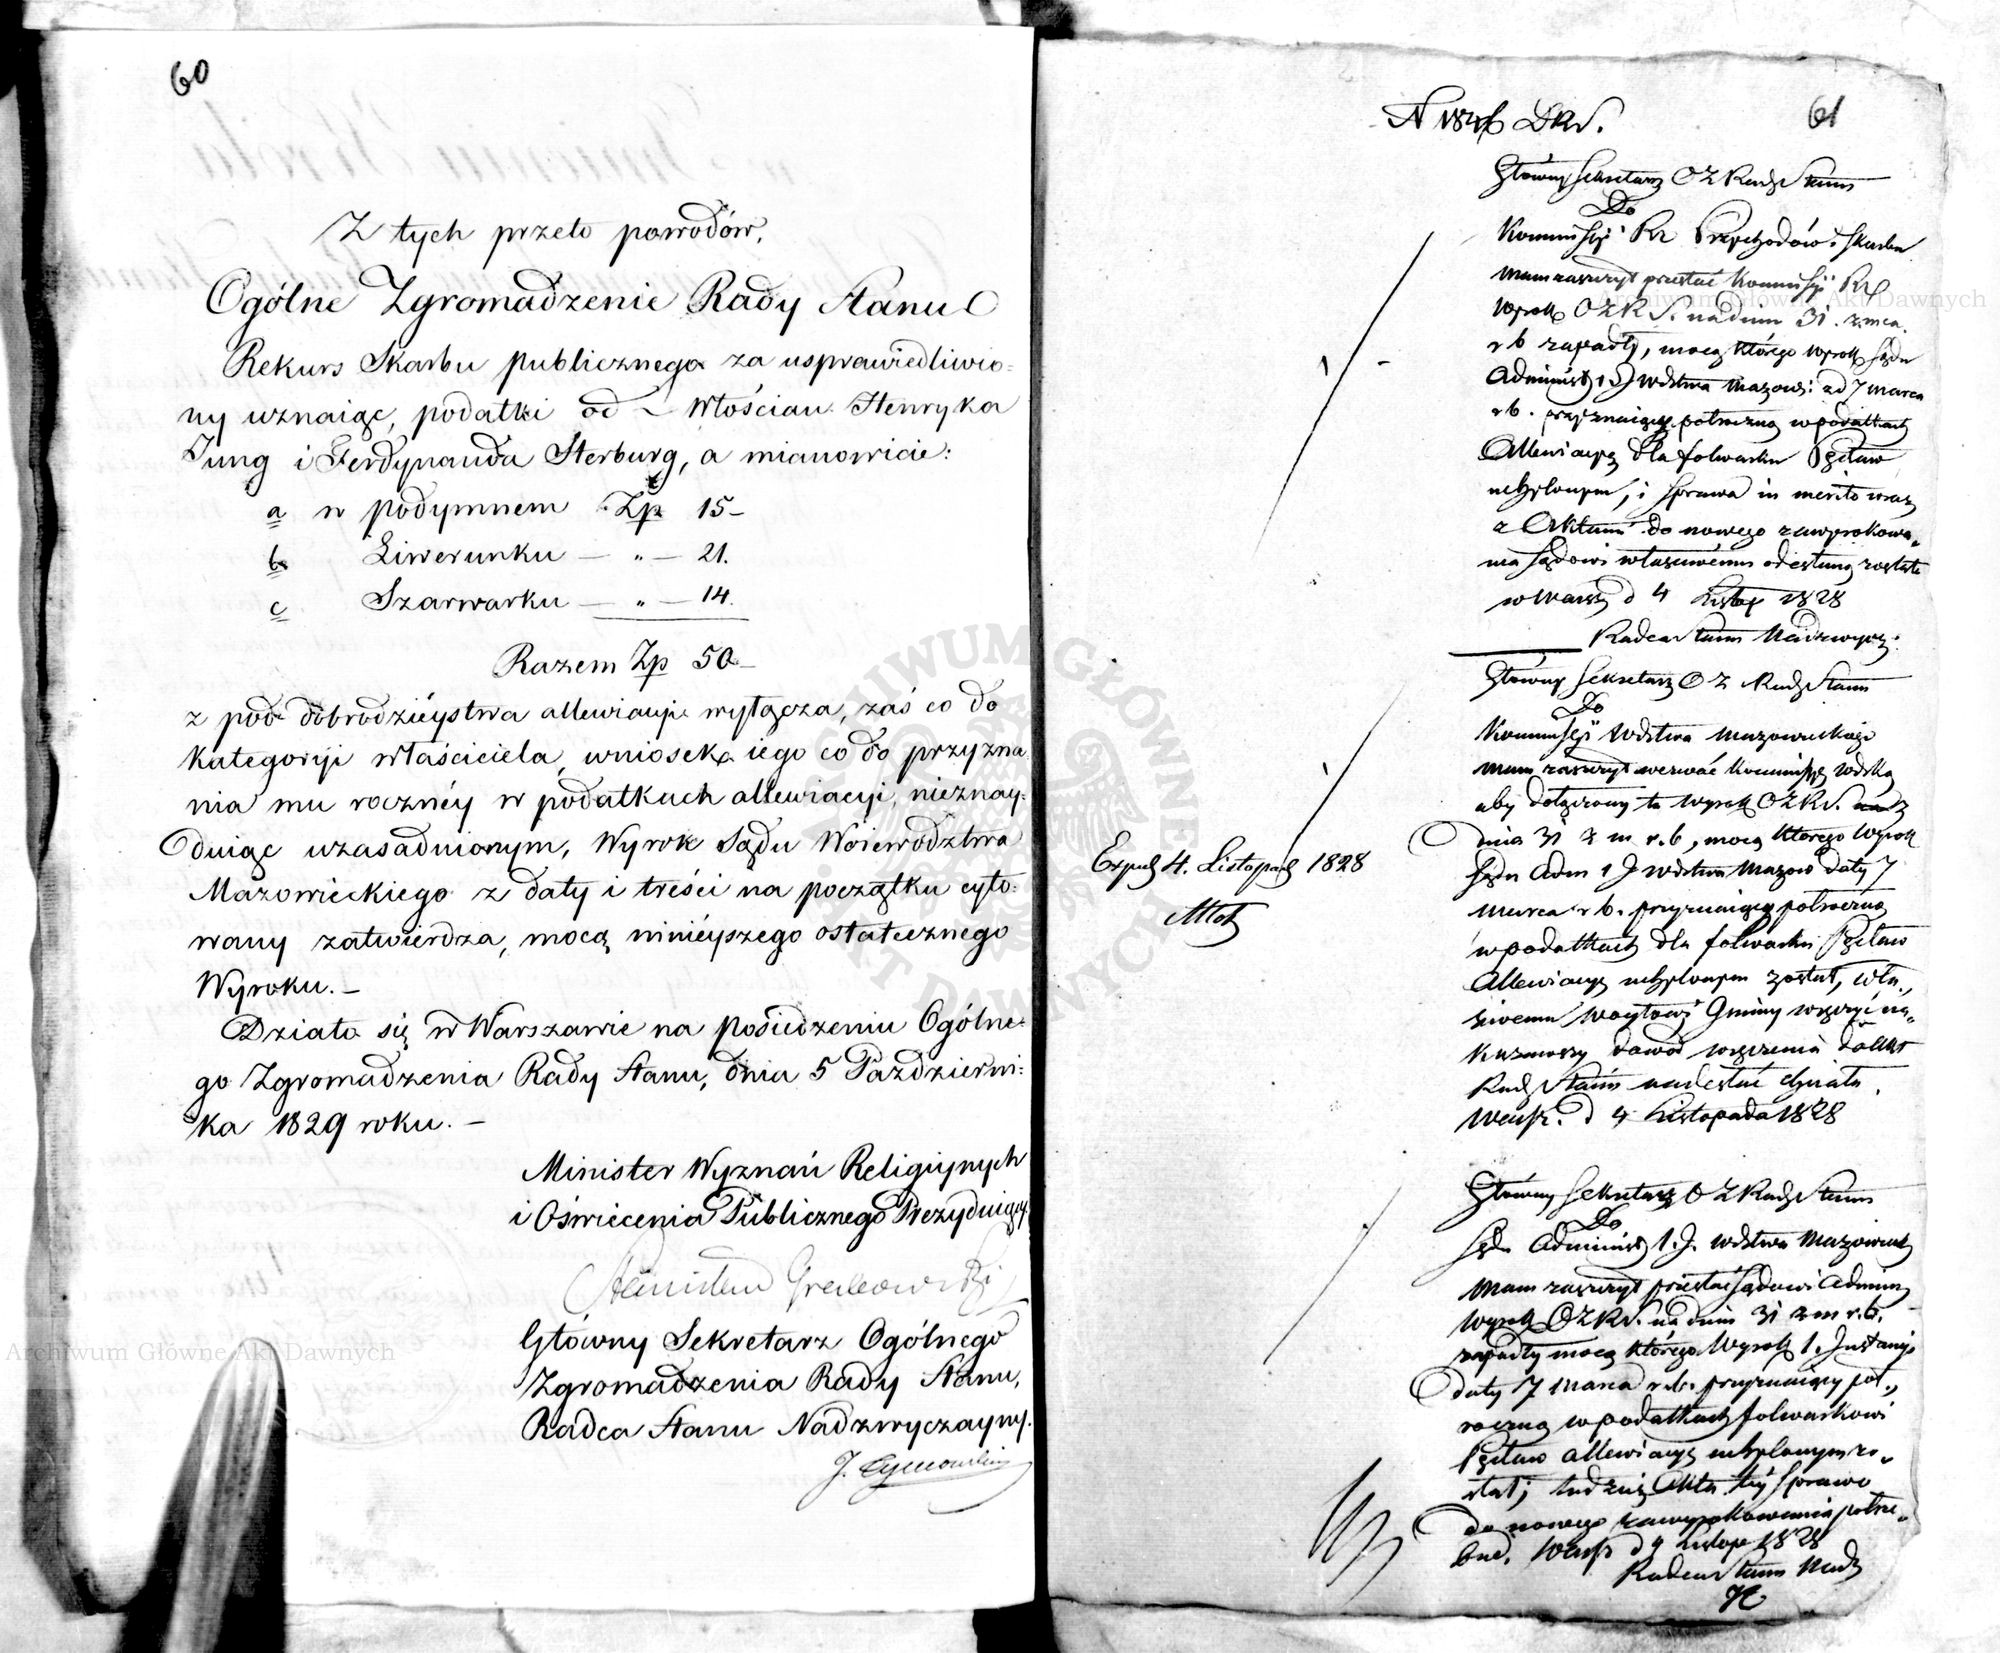 60
Z tych przeto powodów,
Ogólne Zgromadzenie Rady Stanu
Rekurs Skarbu publicznego za usprawiedliwio=
ny uznaiąc, podatki od Włościan Henryka
Jung i Ferdynanda Sterburg, a mianowicie:
a w podymnem Zp 15-
b Liwerunku — „ — 21.
c Szarwarku — „ — 14.
Razem Zp 50.—
z pod dobrodzieystwa allewiacyi wyłącza, zaś co do
kategoryi właściciela, wniosek iego co do przyzna
nia mu rocznéy w podatkach allewiacyi, nieznay=
duiąc uzasadnionym, Wyrok Sądu Woiewództwa
Mazowieckiego z daty i treści na początku cyto=
wany zatwierdza, mocą ninieyszego ostatecznego
Wyroku.—
Działo się w Warszawie na posiedzeniu Ogólne=
go Zgromadzenia Rady Stanu, dnia 5 Październi=
ka 1829 roku.—
Minister Wyznań Religiynych
i Oświecenia Publicznego Prezyduiący
Stanisław Grabowski
Główny Sekretarz Ogólnego
Zgromadzenia Rady Stanu,
Radca Stanu Nadzwyczayny.
61
Główny Sekretarz OZ Rady Stanu
Do
Kommissyi Rz Przychodów i Skarbu
mam zaszczyt przesłać Kommissyi
Wyrok OZRS. na dniu 31. z. mca.
r b zapadły, mocą którego wyrok Sądu
Administ 1 J Wdztwa Mazow: z d 7 marca
r b. przyznaiący półroczną w podatkach
Allewiacyę dla folwarku
uchylonym, i sprawa in merito wraz
z Aktami do nowego zawyrokowa„
nia Sądowi właściwemu odesłaną została
w Warsz d 4 Listop 1828
Radca Stanu Nadzwycz.
Główny Sekretarz OZ Rady Stanu
Do
Kommissyi Wdztwa Mazowieckiego
mam zaszczyt wezwać Kommissyę Wdzką
aby dołączony tu wyrok OZRS. z
dnia 31 z m r.b, mocą którego Wyrok
Sądu Adm 1 J Wdztwa Mazow daty 7
marca r b. przyznaiący półroczną
w podatkach dla folwarku
Allewiacyę uchylonym został, wła„
ściwemu Woytowi Gminy wręczyć na„
kazawszy dowód wręczenia do akt
Rady Stanu nadesłać chciała.
Warsz. d 4 Listopada 1828
Exped 4. Listopad 1828
Główny Sekretarz OZ Rady Stanu
Do
Sądu Administ 1. J. Wdztwa Mazowieck
Mam zaszczyt przesłać Sądowi Admin
wyrok OZRS. na dniu 31 z m r.b.
zapadły mocą którego Wyrok 1. Instancyi
daty 7 Marca r.b. przyznaiący pół„
roczną w podatkach folwarkowi
allewiacyę uchylonym zo„
stał; tudzież Akta téy sprawy
do nowego zawyrokowania potrze„
bne. Warsz d 4 Listopa 1828
Radca Stanu Nadz
Archiwum Główne Akt Dawnych
Archiwum Główne Akt Dawnych
ARCHIWUM GŁÓWNE AKT DAWNYCH